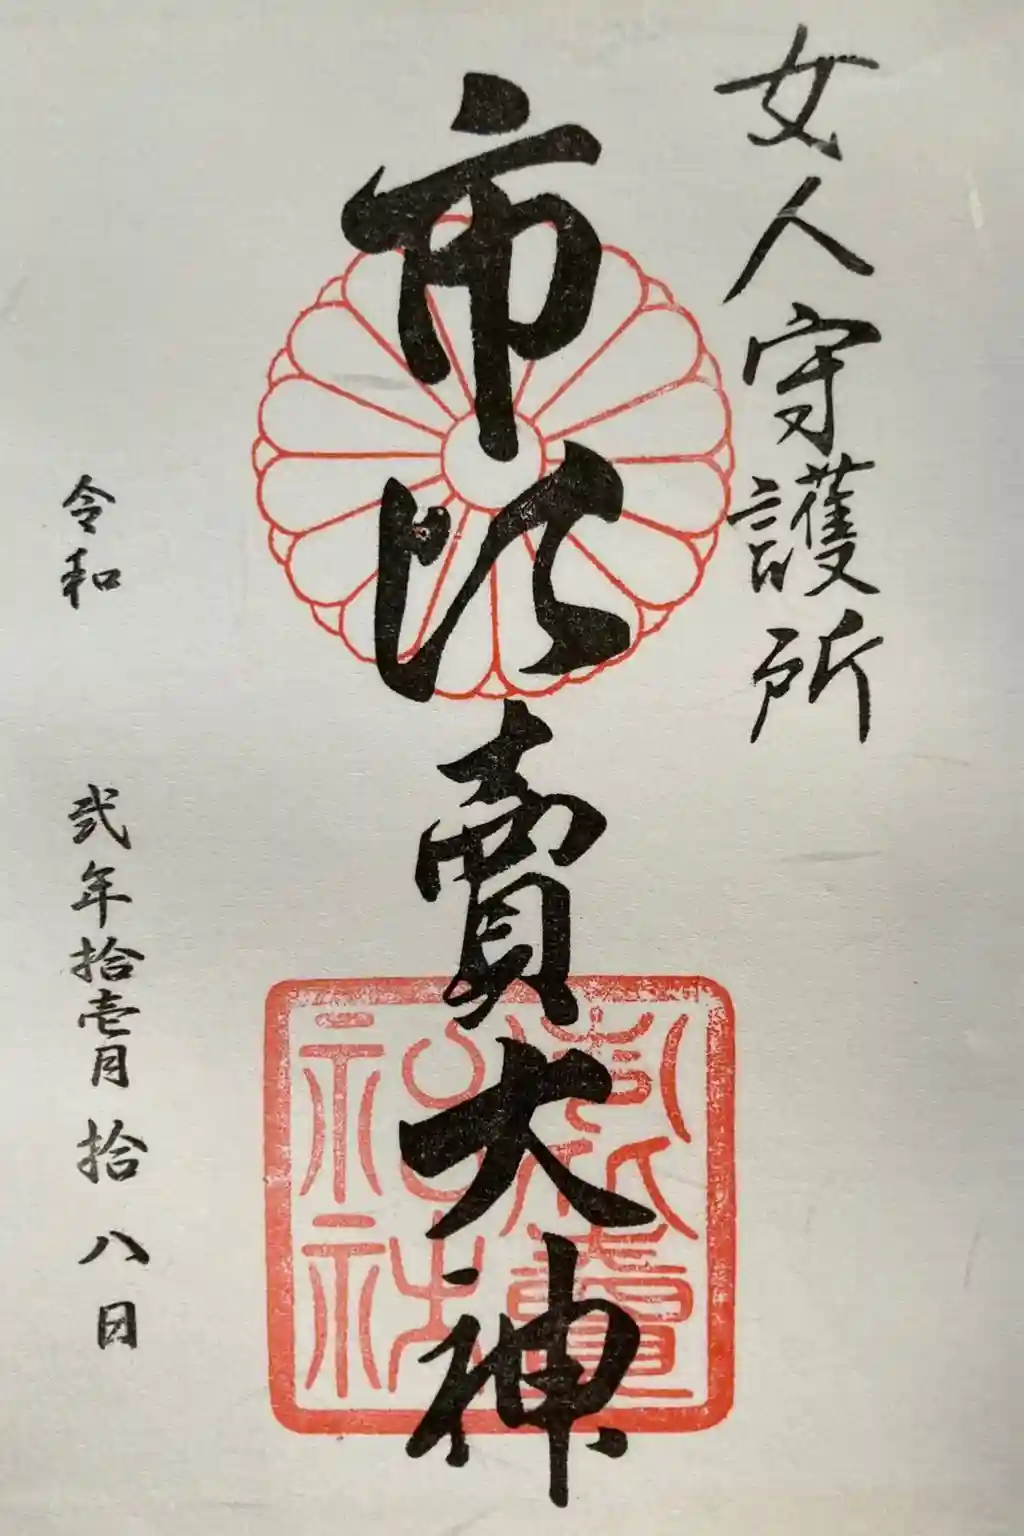 女人守護所
市比賣大神
令和 弐年拾壱月拾八日